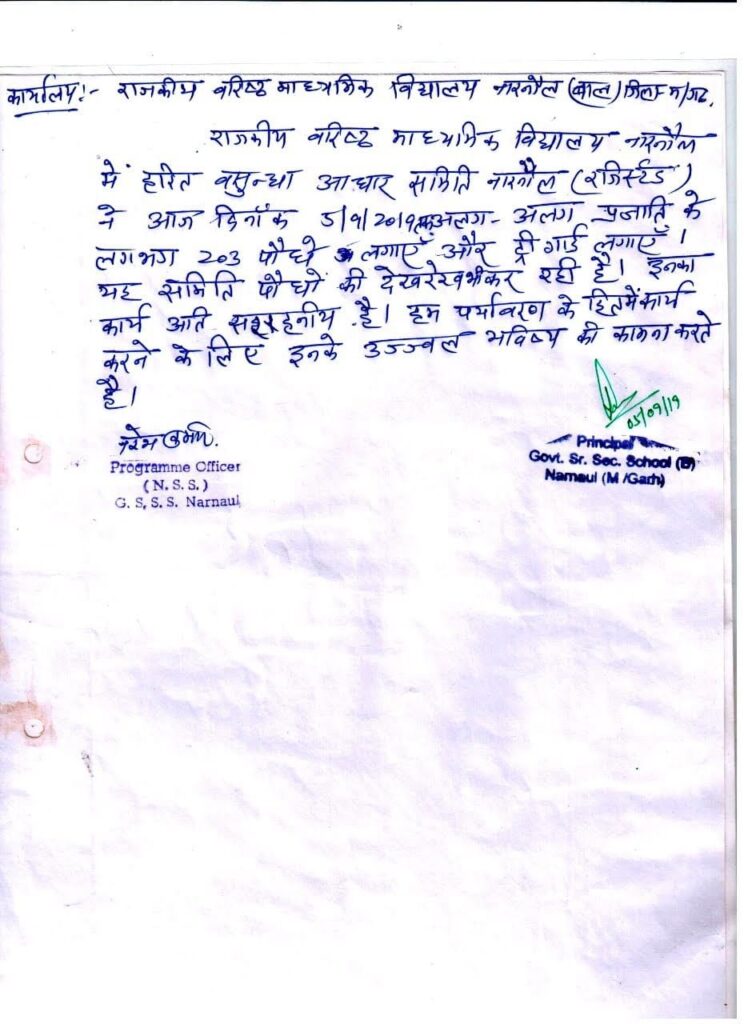 कार्यालय:- राजकीय वरिष्ठ माध्यमिक विद्यालय नारनौल (बाल) जिला म/गढ.
राजकीय वरिष्ठ माध्यमिक विद्यालय नारनौल
में हरित वसुन्धा आधार समिति नारनौल (रजिर्स्टड)
ने आज दिनाँक 5/9/2019 अलग- अलग प्रजाति के
लगभग 203 पौधे लगाएँ और ट्री गार्ड लगाएँ।
यह समिति पौधों की देखरेख भी कर रही है। इनका
कार्य अति सराहनीय है। हम पर्यावरण के हित में कार्य
करने के लिए इनके उज्ज्वल भविष्य की कामना करते
है।
05/09/19
Programme Officer
(N. S. S.)
G. S. S. S. Narnaul
Principal
Govt. Sr. Sec. School (B)
Narnaul (M/Garh)